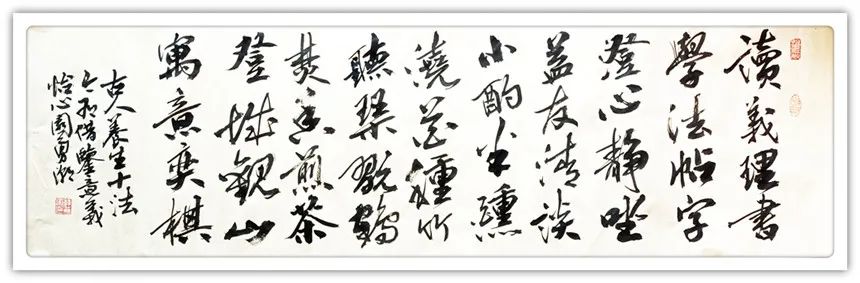 讀義理書
學法帖字
澄心靜坐
益友清談
小酌半醺
澆花種竹
聽琴翫鶴
焚香煎茶
登城觀山
寓意奕棋
古人養生十法
借鑒意義
怡心園勇